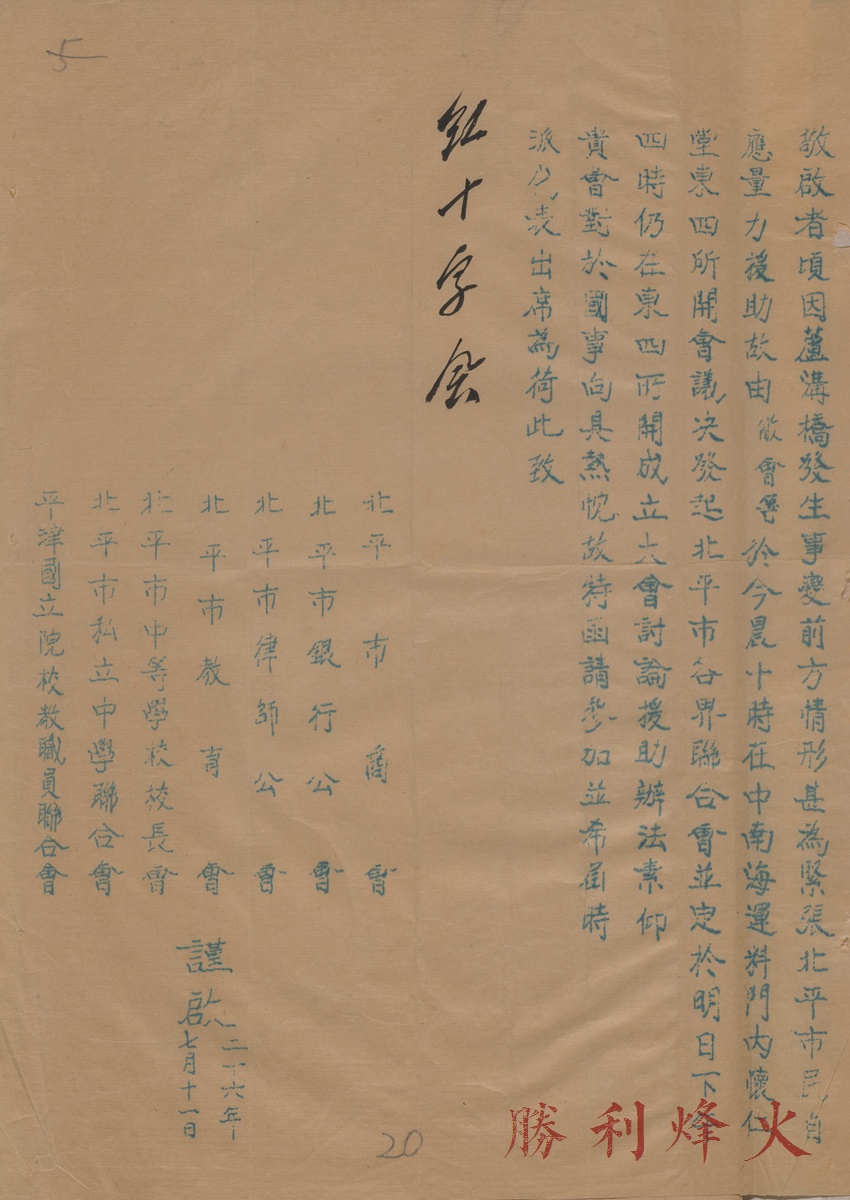 敬啟者頃因蘆溝橋發生事變前方情形甚為緊張北平市民自
應量力援助故由敝會等於今晨十時在中南海運料門內懷仁
堂東四所開會議決發起北平市各界聯合會並定於明日下午
四時仍在東四所開成立大會討論援助辦法素仰
貴會對於國事向具熱忱故特函請參加並希屆時
派代表出席為荷此致
紅十字會
北平市商會
北平市銀行公會
北平市律師公會
北平市教育會
北平市中等學校校長會
北平市私立中學聯合會
平津國立院校教職員聯合會
謹啟
二十六年
七月十一日
5
20
勝利烽火